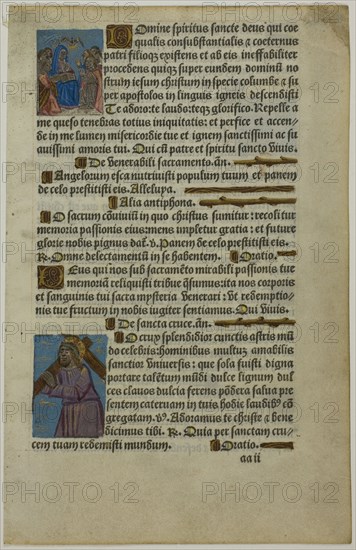 Domine spiritus sancte deus qui coe
qualis consubstantialis & coeternus
patri filioqz existens et ab eis ineffabiliter
procedens quiqz super eundem dominū no
strum iesum christum in specie columbe & su
per apostolos in linguis igneis descendisti
Te adoro: te laudo: teqz glorifico. Repelle a
me queso tenebras totius iniquitatis: et perfice et accen
de in me lumen misericordie tue et ignem sanctissimi ac su
auissimi amoris tui. Qui cū patre et spiritu sancto viuis.
De venerabili sacramento. añ.
Angelorum esca nutriuisti populum tuum et panem
de celo prestitisti eis. Alleluya.
Alia antiphona.
O sacrum cōuiuiū in quo christus sumitur: recolitur
memoria passionis eius: mens impletur gratia: et future
glorie nobis pignus datur. v. Panem de celo prestitisti eis.
R. Omne delectamentū in se habentem. Oratio.
Deus qui nobis sub sacramēto mirabili passionis tue
memoriā reliquisti tribue q̄sumus: ita nos corporis
et sanguinis tui sacra mysteria venerari: vt redemptio
nis tue fructum in nobis iugiter sentiamus. Qui viuis.
De sancta cruce. añ.
O crux splendidior cunctis astris mū
do celebris: hominibus multum amabilis
sanctior vniuersis: que sola fuisti digna
portare talētum mūdi dulce lignum dul
ces clauos dulcia ferens pōdera salua pre
sentem cateruam in tuis hodie laudibus cō
gregatam. v. Adoramus te christe & bene
dicimus tibi. R. Quia per sanctam cru
cem tuam redemisti mundum. Oratio.
aa ii